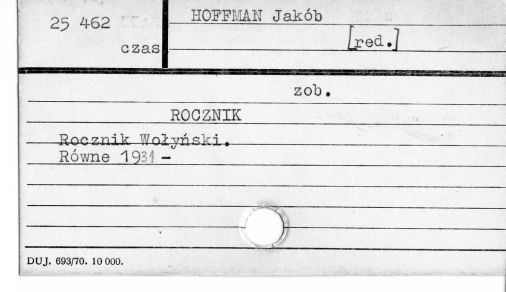 25 462
HOFFMAN Jakób
czas
[red.]
zob.
ROCZNIK
Rocznik Wołyński.
Równe 1931 -
DUJ. 693/70. 10 000.